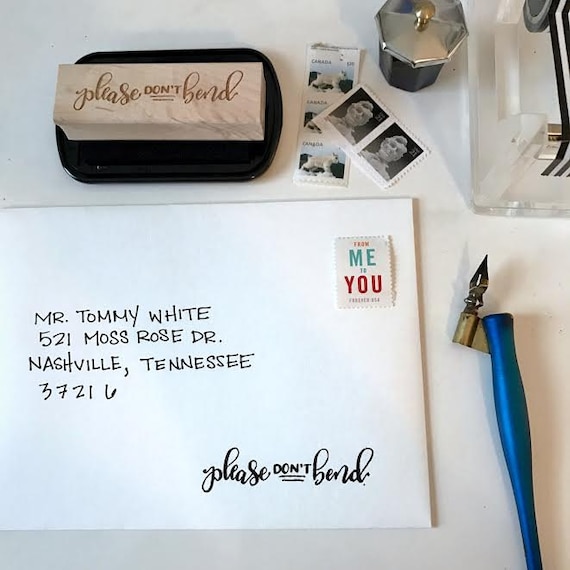 please DON'T bend.
CANADA
CANADA
CANADA
FROM
ME
TO
YOU
FOREVER USA
MR. TOMMY WHITE
521 MOSS ROSE DR.
NASHVILLE, TENNESSEE
37216
please DON'T bend.